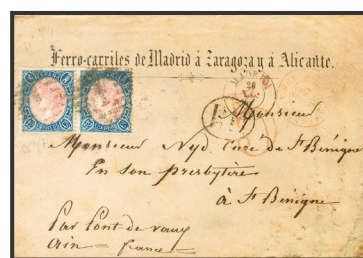 Ferro-carriles de Madrid á Zaragoza y á Alicante.
Monsieur
Monsieur Nyd. Curé de St Bénigne
En son presbytère
à St Bénigne
Par Pont de vaux
Ain = france =